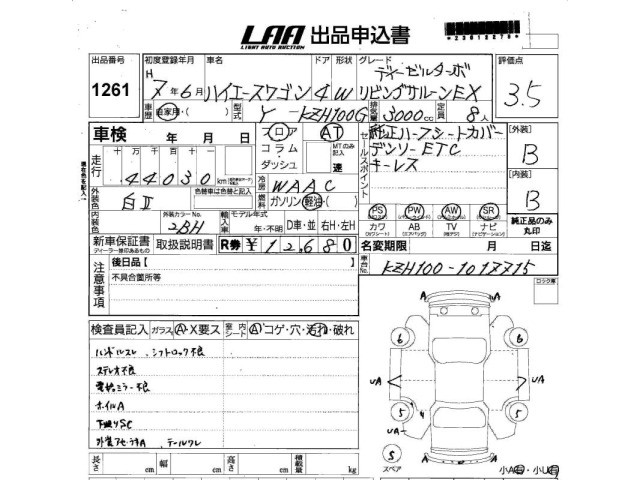 LAA 出品申込書
LIGHT AUTO AUCTION
23612270
出品番号 初度登録年月 車名 ドア 形状 グレード 評価点
1261 H 7年6月 ハイエースワゴン 4 W ディーゼルターボ リビングサルーンEX 3.5
車歴 自家用・( ) 型式 Y-KZH100G 排気量 3000cc 定員 8人
車検 年 月 日 フロア AT 純正ハーフシートカバー [外装]
コラム MTのみ記入 セールスポイント デンソーETC B
走行 十万 万 千 百 十 一 ダッシュ 速 キーレス
現在色を記入! 44030km 冷房 WAAC [内装]
外装色 白Ⅱ 色替車は色替と記入 燃料 ガソリン・軽油・( ) B
PS PW AW SR 純正品のみ丸印
カワ AB TV ナビ
内装色 外装カラーNo. 2BH 輸入車 モデル年式 年・不明 D車・並 右H・左H
新車保証書 取扱説明書 R券 ¥12680 名変期限 月 日迄
ディーラー捺印あるもの
注意事項 後日品【 】 車台No. KZH100-1017715
不具合箇所等 ロック庫
検査員記入 ガラス A・X要ス 室内シート A コゲ・穴・汚れ・破れ
ハンドルスレ、シフトロック不良
ステレオ不良
電格ミラー不良
ホイルA
下廻りSC
外装アセ・ラチA、テールワレ
A A
6 6
UA UA
5 5
UA A
S
スペア A A
小A有・小U有
長さ cm 幅 cm 高さ cm 積載量 kg